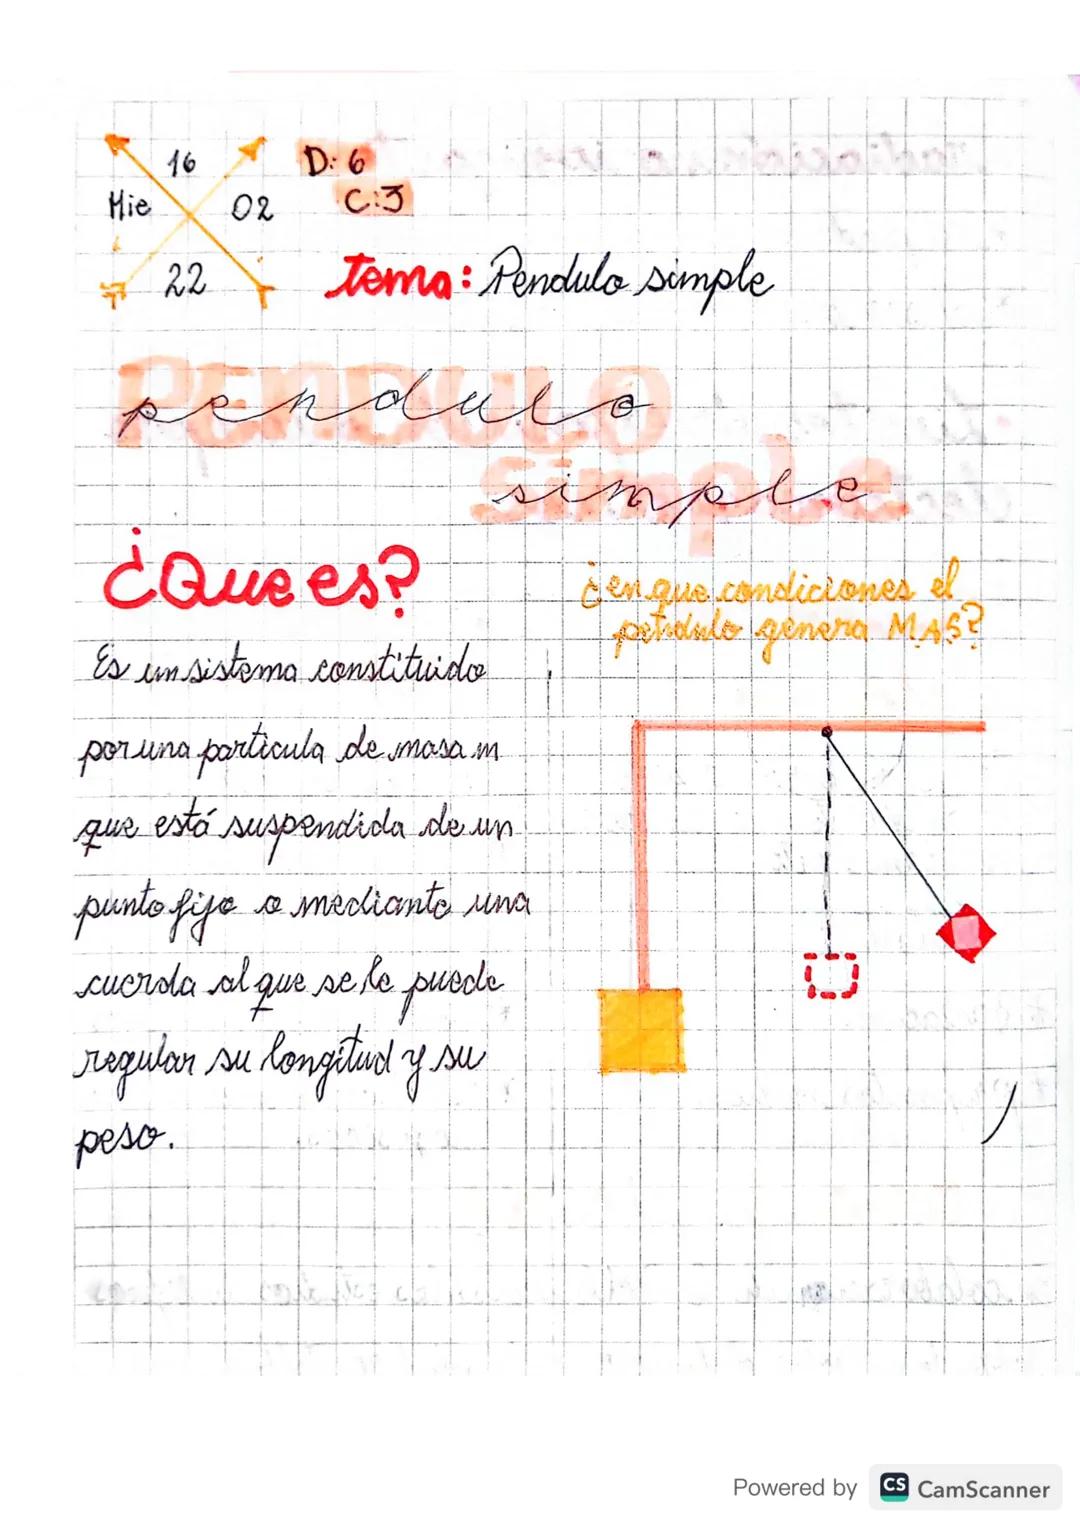 16
Mie 02
22
D: 6
C:3
tema: Pendulo simple
PENDULO
pendulo
simple
simple
¿Que es?
Es un sistema constituido
por una particula de masa m
que está suspendida de un
punto fijo o mediante una
cuerda al que se le puede
regular su longitud y su
peso.
¿en que condiciones el
pendulo genera MAS?
Powered by CS CamScanner